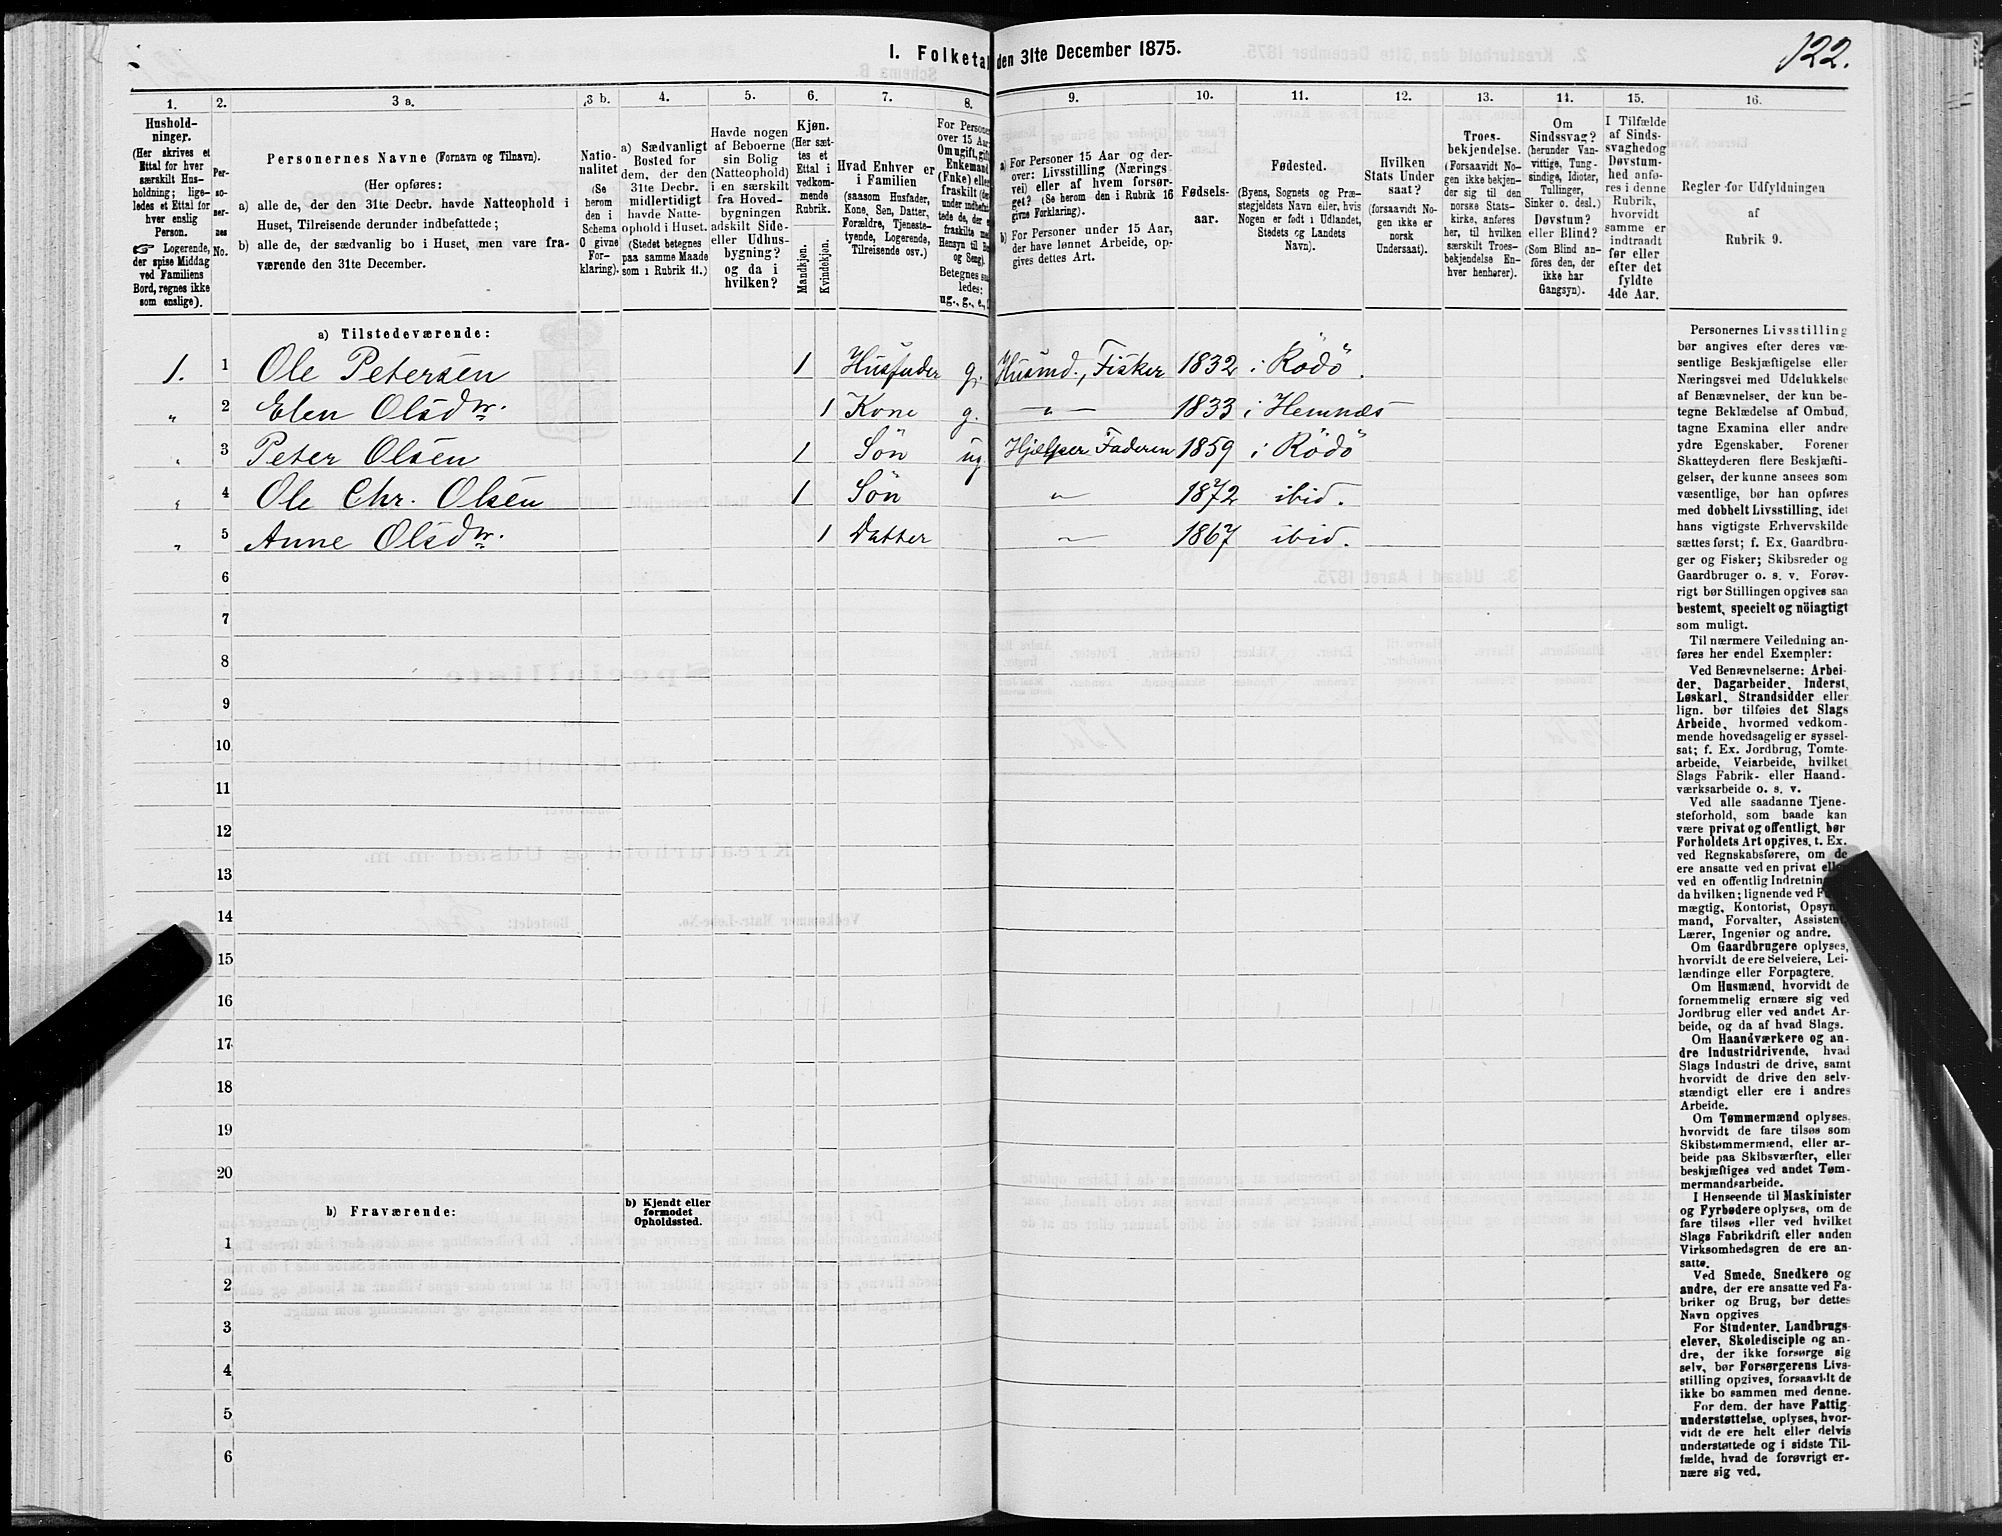 I. Folketal den 31te December 1875.
122.
1.
2.
3 a.
3 b.
4.
5.
6.
7.
8.
9.
10.
11.
12.
13.
14.
15.
16.
Hushold-
ninger.
(Her skrives et
Ettal for hver
særskilt Hus-
holdning; lige-
ledes et Ettal for
hver enslig
Person.
☞ Logerende,
der spise Middag
ved Familiens
Bord, regnes ikke
som enslige).
Per-
so-
ner-
nes
No.
Personernes Navne (Fornavn og Tilnavn).
(Her opføres:
a) alle de, der den 31te Decbr. havde Natteophold i
Huset, Tilreisende derunder indbefattede;
b) alle de, der sædvanlig bo i Huset, men vare fra-
værende den 31te December.
Natio-
nalitet
(Se
herom
den i
Schema
O givne
For-
klaring).
a) Sædvanligt
Bosted for
dem, der den
31te Decbr.
midlertidigt
havde Natte-
ophold i Huset.
(Stedet betegnes
paa samme Maade
som i Rubrik 11.)
Havde nogen
af Beboerne
sin Bolig
(Natteophold)
i en særskilt
fra Hoved-
bygningen
adskilt Side-
eller Udhus-
bygning?
og da i
hvilken?
Kjøn.
(Her sæt-
tes et
Ettal i
vedkom-
mende
Rubrik.
Mandkjøn.
Kvindekjøn.
Hvad Enhver er
i Familien
(saasom Husfader,
Kone, Søn, Datter,
Forældre, Tjeneste-
tyende, Logerende,
Tilreisende osv.)
For Personer
over 15 Aar:
Om ugift, gift,
Enkemand
(Enke) eller
fraskilt
Betegnes saa-
ledes:
ug., g., e.,
a) For Personer 15 Aar og der-
over: Livsstilling (Nærings
vei) eller af hvem forsør-
get? (Se herom den i Rubrik 16
givne Forklaring).
b) For Personer under 15 Aar,
der have lønnet Arbeide, op-
gives dettes Art.
Fødsels-
aar.
Fødested.
(Byens, Sognets og Præ-
stegjeldets Navn eller, hvis
Nogen er født i Udlandet,
Stedets og Landets
Navn).
Hvilken
Stats Under
saat?
(forsaavidt No-
gen ikke er
norsk
Undersaat).
Troes-
bekjendelse.
(Forsaavidt No-
gen ikke bekjen-
der sig til den
norske Stats-
kirke, anføres
her, til hvilken
særskilt Troes-
bekjendelse En-
hver henhører).
Om
Sindssvag?
(herunder Van-
vittige, Tung-
sindige, Idioter,
Tullinger,
Sinker o. desl.)
Døvstum?
eller Blind?
(Som Blind an-
føres den, der
ikke har
Gangsyn).
I Tilfælde
af Sinds-
svaghed og
Døvstum-
hed anfø-
res i denne
Rubrik,
hvorvidt
samme er
indtraadt
før eller
efter det
fyldte
4de Aar.
Regler for Udfyldningen
af
Rubrik 9.
a) Tilstedeværende:
1. 1 Ole Petersen 1 Husfader g. Husmd., Fisker 1832 i Rödö.
„ 2 Elen Olsdtr. 1 Kone g. —„— 1833 i Hemnæs
„ 3 Peter Olsen 1 Sön ug. Hjælper Faderen 1859 i Rödö
„ 4 Ole Chr. Olsen 1 Sön „ 1872 ibid.
„ 5 Anne Olsdtr. 1 Datter „ 1867 ibid.
6
7
8
9
10
11
12
13
14
15
16
17
18
19
20
b) Fraværende:
b) Kjendt eller
formodet
Opholdssted.
1
2
3
4
5
6
Personernes Livsstilling
bør angives efter deres væ-
sentlige Beskjæftigelse eller
Næringsvei med Udelukkelse
af Benævnelser, der kun be-
tegne Beklædelse af Ombud,
tagne Examina eller andre
ydre Egenskaber. Forener
Skatteyderen flere Beskjæfti-
gelser, der kunne ansees som
væsentlige, bør han opføres
med dobbelt Livsstilling, idet
hans vigtigste Erhvervskilde
sættes først; f. Ex. Gaardbru-
ger og Fisker; Skibsreder og
Gaardbruger o. s. v. Forøv-
rigt bør Stillingen opgives saa
bestemt, specielt og nöiagtigt
som muligt.
Til nærmere Veiledning an-
føres her endel Exempler:
Ved Benævnelserne: Arbei-
der, Dagarbeider, Inderst,
Løskarl, Strandsidder eller
lign. bør tilføies det Slags
Arbeide, hvormed vedkom-
mende hovedsagelig er syssel-
sat; f. Ex. Jordbrug, Tomte-
arbeide, Veiarbeide, hvilket
Slags Fabrik- eller Haand-
værksarbeide o. s. v.
Ved alle saadanne Tjene-
steforhold, som baade kan
være privat og offentligt, bør
Forholdets Art opgives, t. Ex.
ved Regnskabsførere, om de
ere ansatte ved en privat eller
ved en offentlig Indretning
da hvilken; lignende ved
mægtig, Kontorist, Opsyns-
mand, Forvalter, Assistent,
Lærer, Ingeniør og andre.
Om Gaardbrugere oplyses,
hvorvidt de ere Selveiere, Lei-
lændinge eller Forpagtere.
Om Husmænd, hvorvidt de
fornemmelig ernære sig ved
Jordbrug eller ved andet Ar-
beide, og da af hvad Slags.
Om Haandværkere og an-
dre Industridrivende, hvad
Slags Industri de drive, samt
hvorvidt de drive den selv-
stændigt eller ere i andres
Arbeide.
Om Tømmermænd oplyses,
hvorvidt de fare tilsøs som
Skibstømmermænd, eller ar-
beide paa Skibsværfter, eller
beskjæftiges ved andet Tøm-
mermandsarbeide.
I Henseende til Maskinister
og Fyrbødere oplyses, om de
fare tilsøs eller ved hvilket
Slags Fabrikdrift eller anden
Virksomhedsgren de ere an-
satte.
Ved Smede, Snedkere og
andre, der ere ansatte ved Fa-
briker og Brug, bør dettes
Navn opgives
For Studenter, Landbrugs-
elever, Skoledisciple og an-
dre, der ikke forsørge sig
selv, bør Forsørgerens Livs-
stilling opgives, forsaavidt de
ikke bo sammen med denne.
For dem, der have Fattig-
understøttelse, oplyses, hvor-
vidt de ere helt eller delvis
understøttede og i sidste Til-
fælde, hvad de forøvrigt er-
nære sig ved.